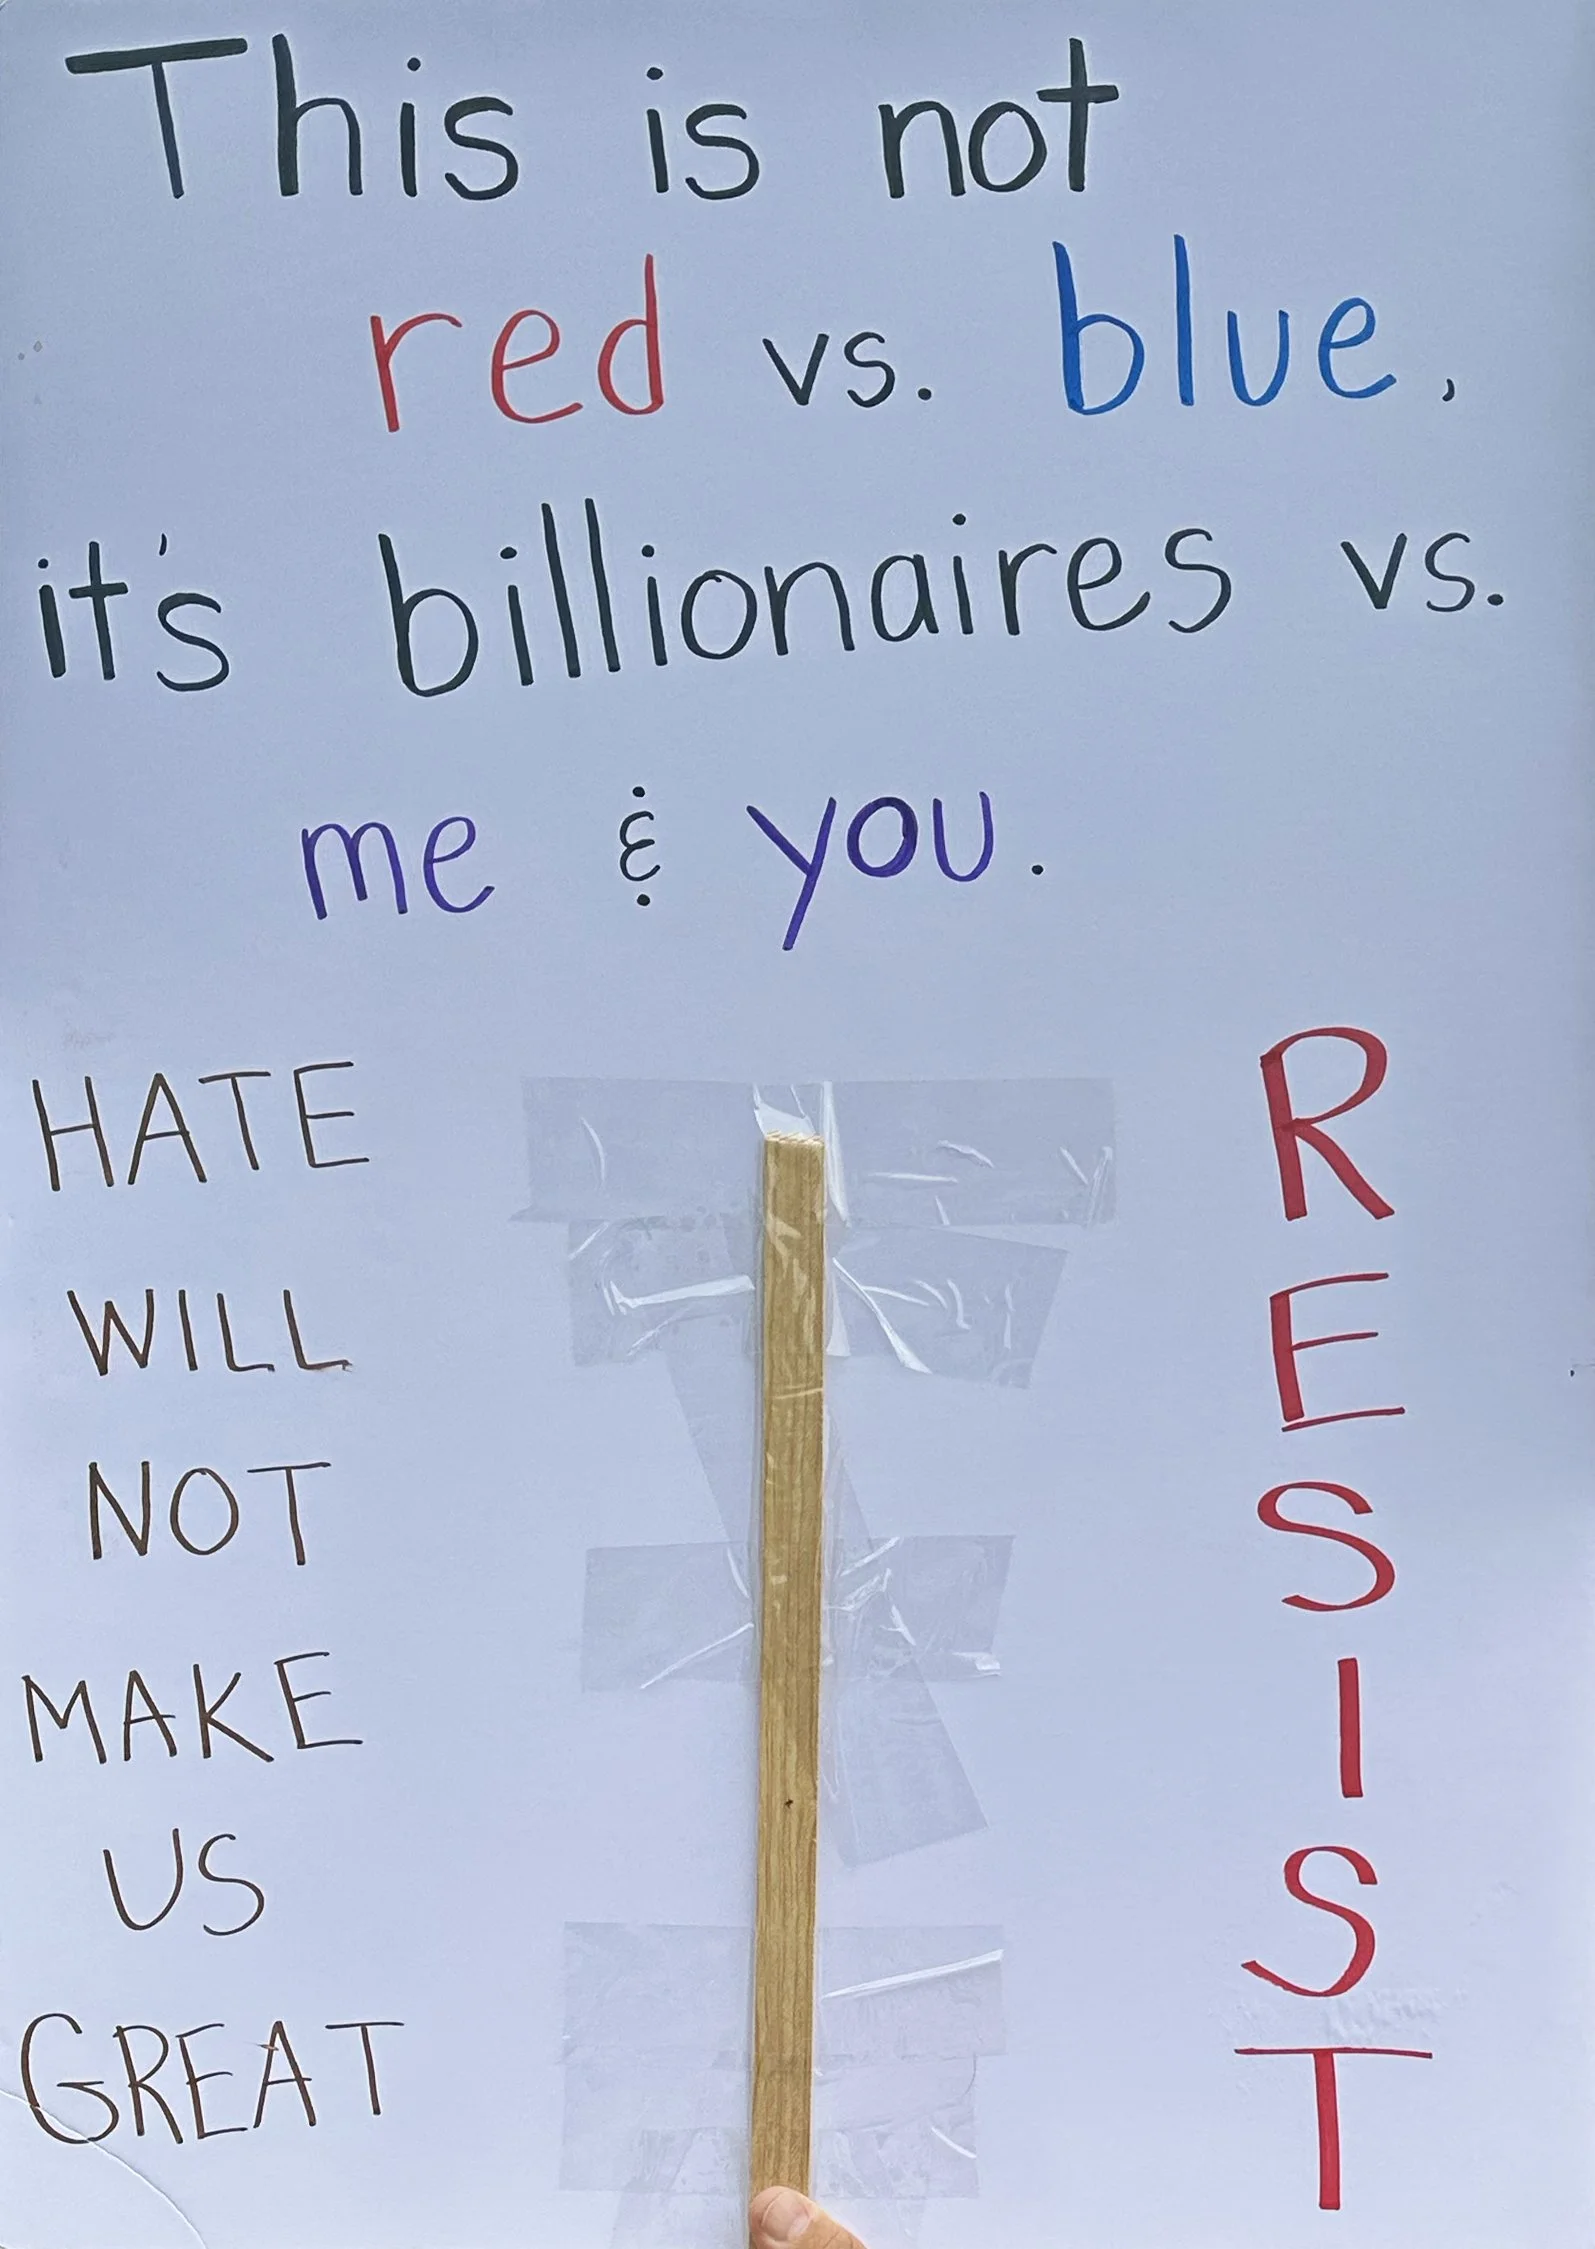 This is not
red vs. blue,
it's billionaires vs.
me & you.
HATE
WILL
NOT
MAKE
US
GREAT
R
E
S
I
S
T